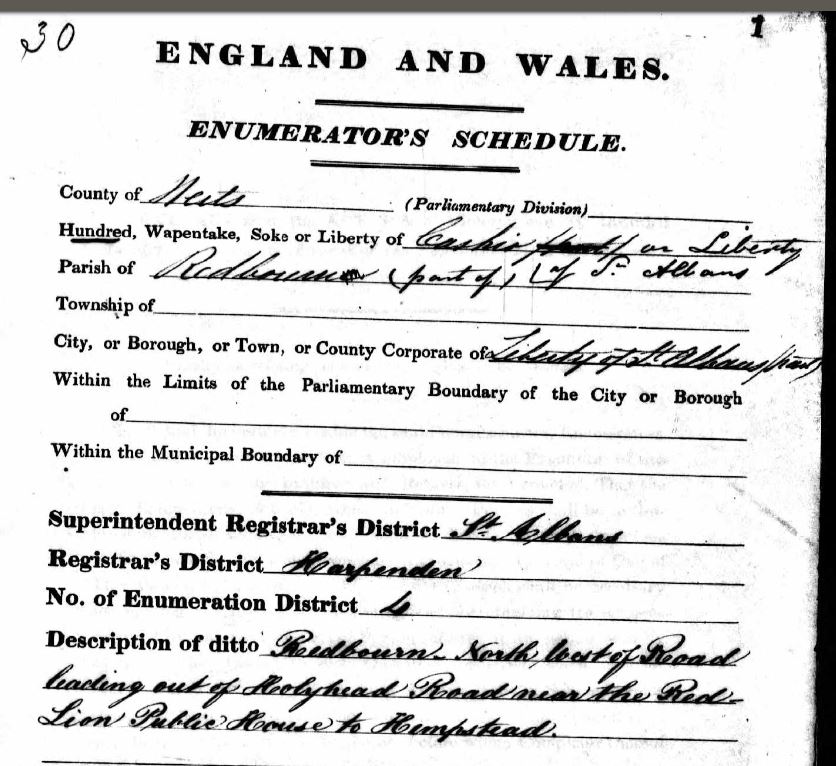 30
1
ENGLAND AND WALES.
ENUMERATOR'S SCHEDULE.
County of Herts (Parliamentary Division)
Hundred, Wapentake, Soke or Liberty of Cashio (part) or Liberty
Parish of Redbourn (part of) of St Albans
Township of
City, or Borough, or Town, or County Corporate of Liberty of St Albans (part)
Within the Limits of the Parliamentary Boundary of the City or Borough
of
Within the Municipal Boundary of
Superintendent Registrar's District St. Albans
Registrar's District Harpenden
No. of Enumeration District 4
Description of ditto Redbourn. North West of Road
leading out of Holyhead Road near the Red-
Lion Public House to Hempstead.